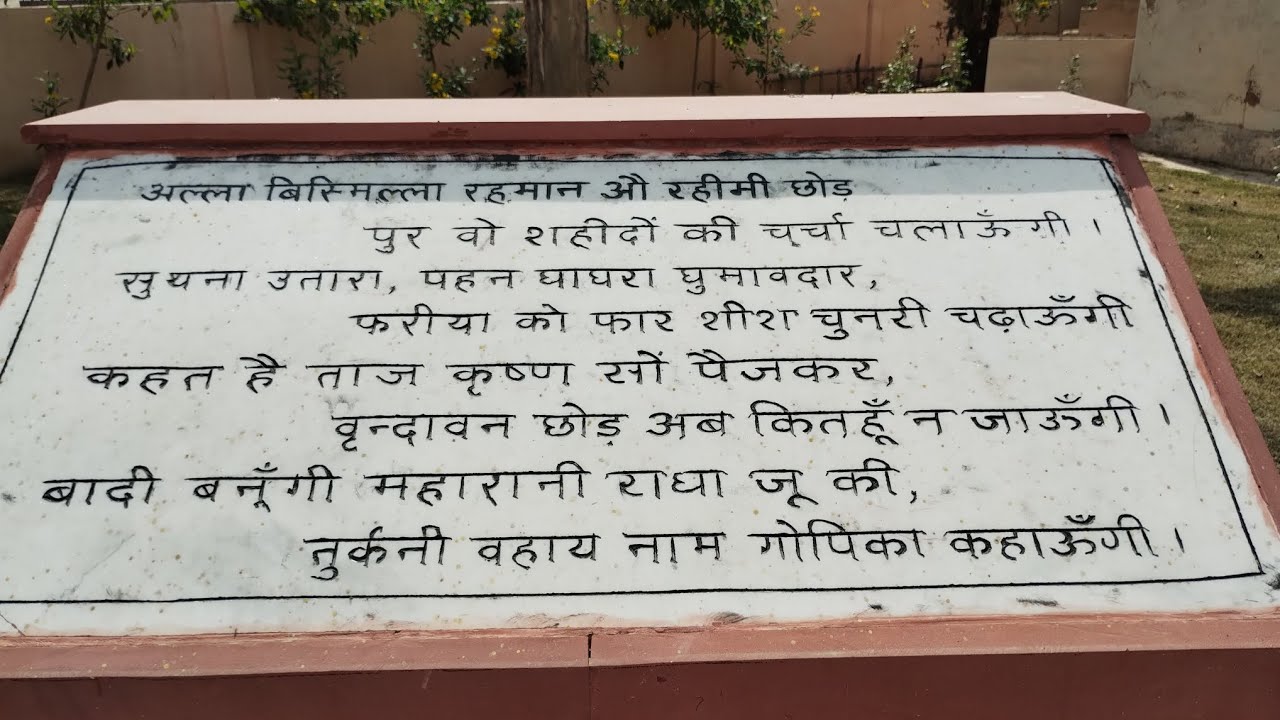 अल्ला बिस्मिल्ला रहमान औ रहीमी छोड़
पुर वो शहीदों की चर्चा चलाऊँगी ।
सुथना उतारा, पहन घाघरा घुमावदार,
फरीया को फार शीश चुनरी चढ़ाऊँगी
कहत है ताज कृष्ण सों पैजकर,
वृन्दावन छोड़ अब कितहूँ न जाऊँगी ।
बादी बनूँगी महारानी राधा जू की,
तुर्कनी वहाय नाम गोपिका कहाऊँगी ।